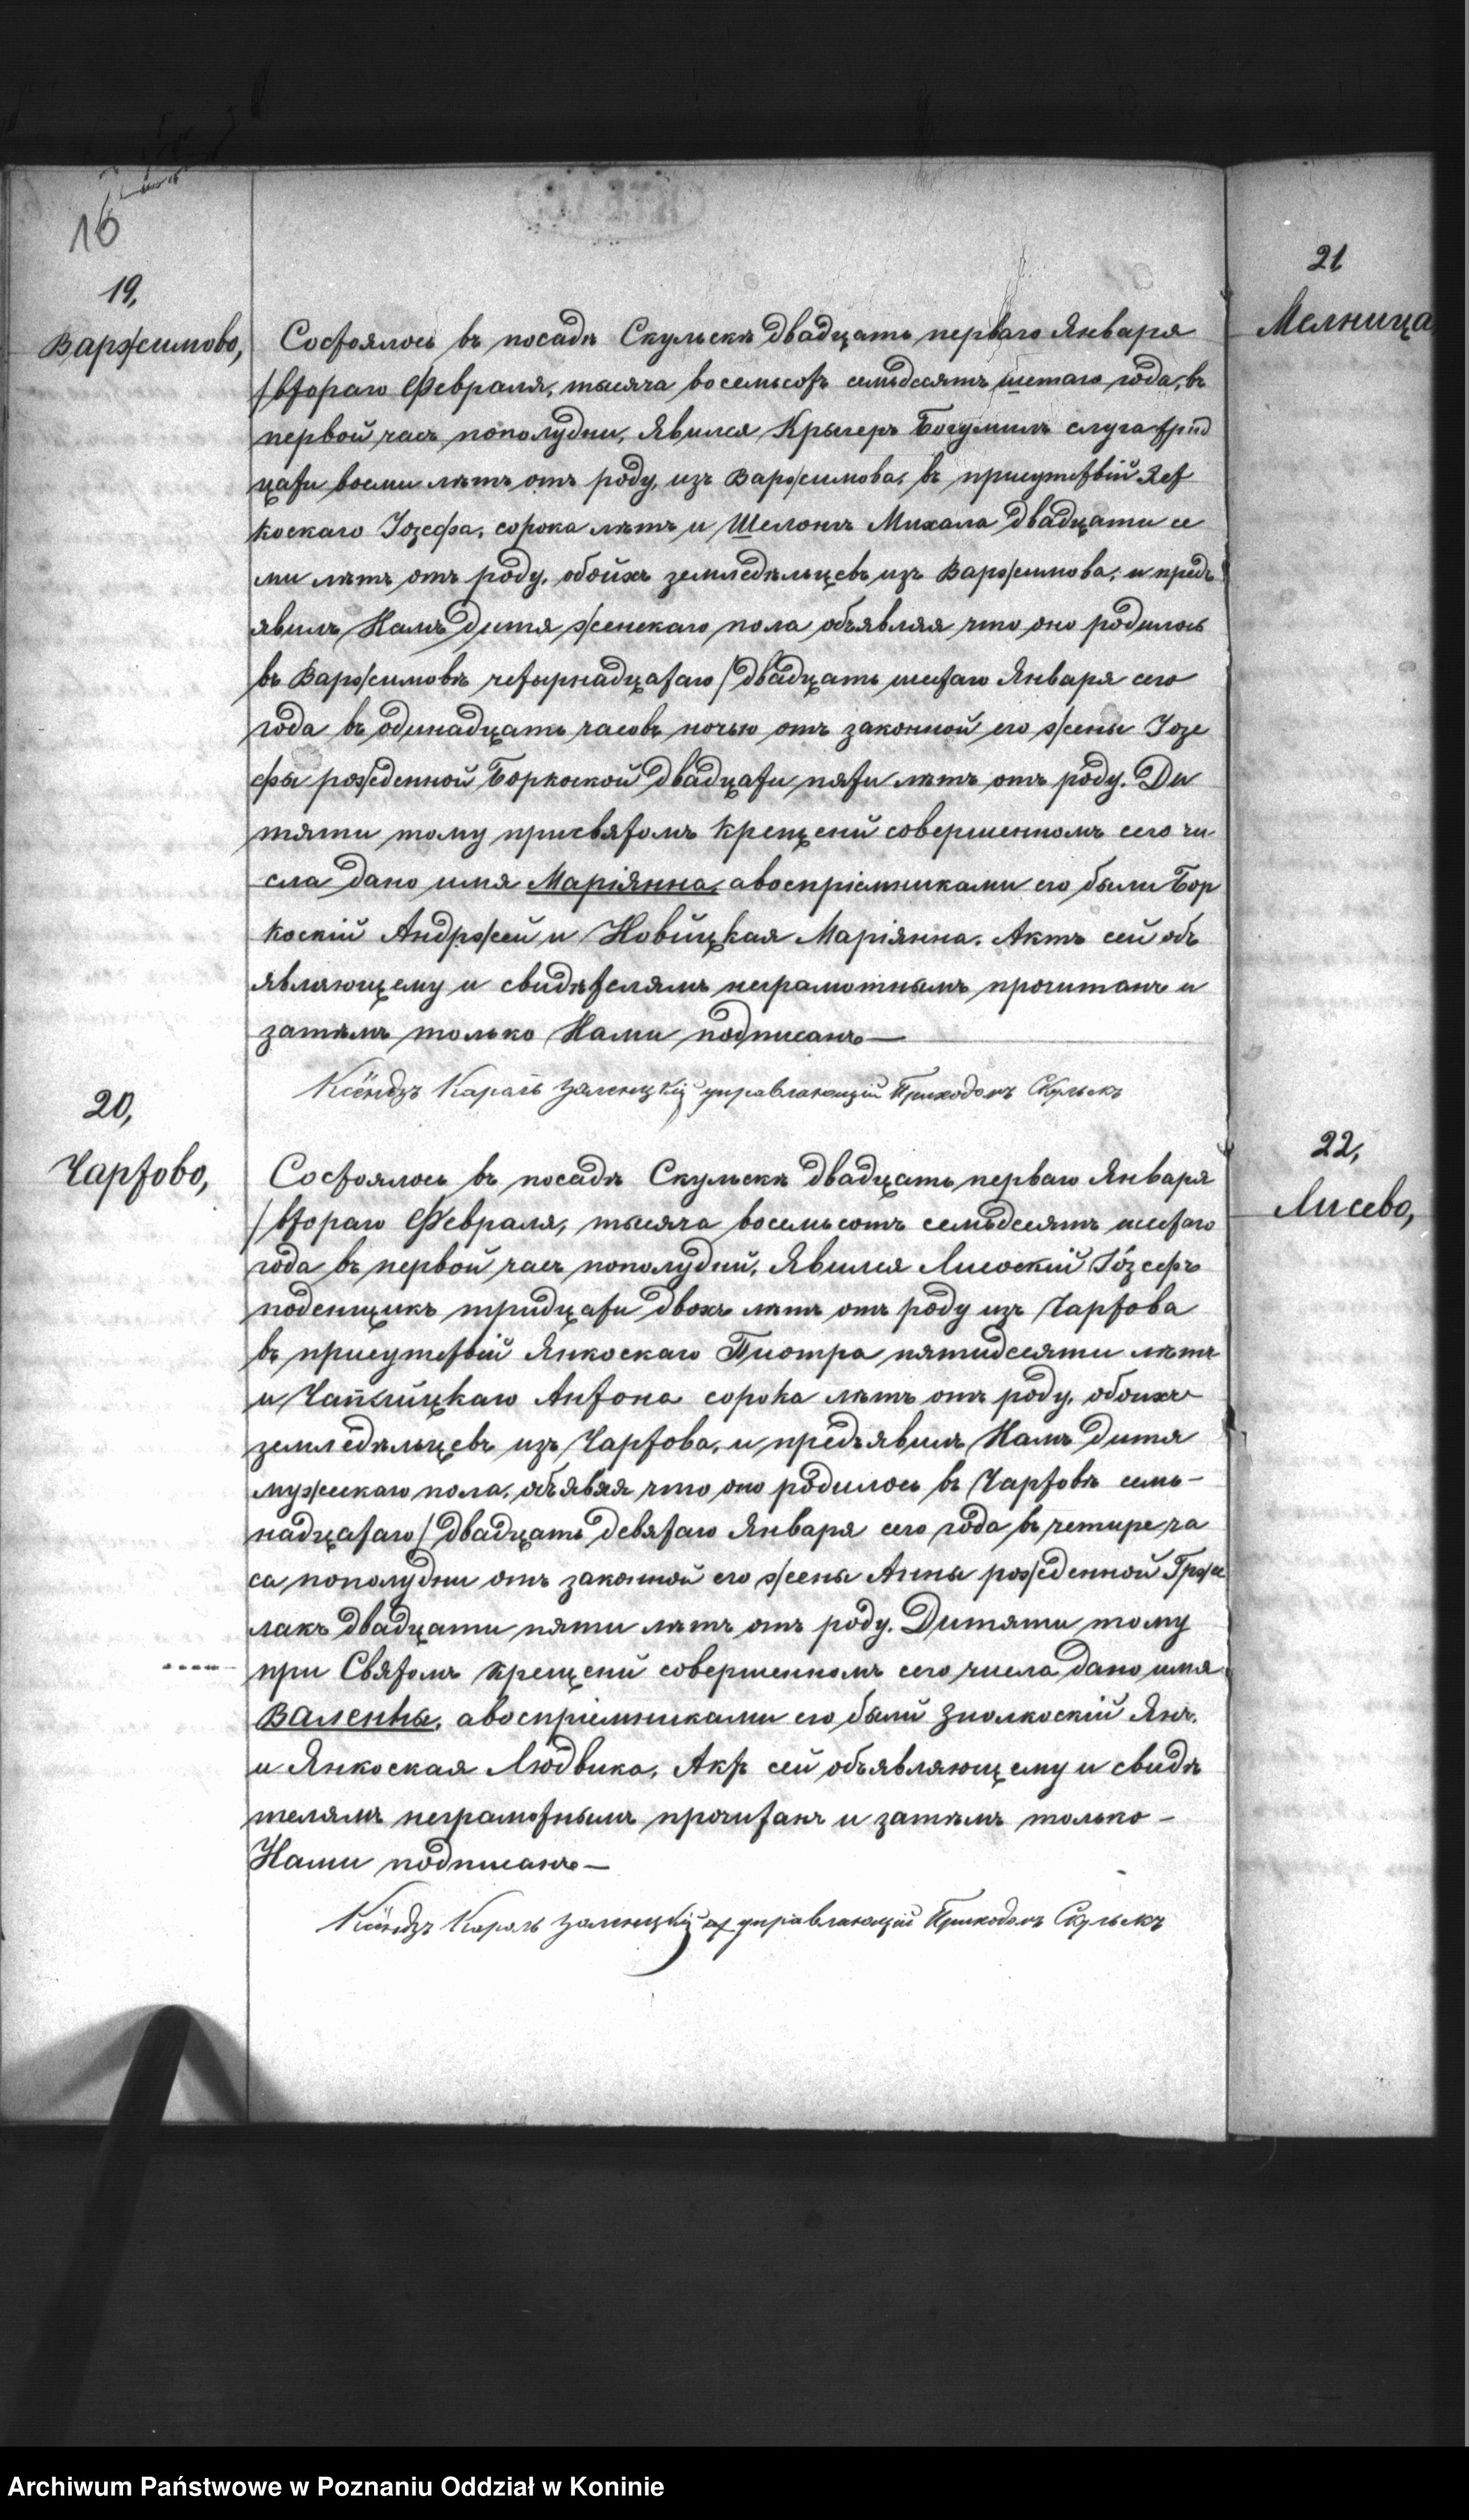 16
19,
Варжимово,
Состоялось въ посадѣ Скульскѣ двадцать перваго Января
/втораго Февраля, тысяча восемьсотъ семьдесятъ шетаго года, въ
первой часъ пополудни, Явился Крыгеръ Богумилъ слуга трид
цати восми лѣтъ отъ роду, изъ Варжимова, въ присутствій Яст
коскаго Іозефа, сорока лѣтъ и Шелонгъ Михала двадцати се
ми лѣтъ отъ роду, обойхъ земледѣльцевъ изъ Варжимова, и предъ
явилъ Намъ дитя женскаго пола объявляя что оно родилось
въ Варжимовѣ четырнадцатаго / двадцать шестаго Января сего
года въ одинадцать часовъ ночью отъ законной его жены Іозе
фы рожденной Боркоской двадцати пяти лѣтъ отъ роду. Ди
тяти тому присвятомъ Крещеній совершенномъ сего чи
сла дано имя Маріянна, авоспріемниками его были Бор
коскій Анджей и Новицкая Маріянна. Актъ сей объ
являющему и свидѣтелямъ неграмотнымъ прочитанъ и
затѣмъ только Нами подписанъ—
Ксёндзъ Кароль Заленцкій управляющій Приходомъ Скульскъ
20,
Чартово,
Состоялось въ посадѣ Скульскѣ двадцать перваго Января
/втораго Февраля, тысяча восемьсотъ семьдесятъ шестаго
года въ первой часъ пополудний, Явился Лисоскій Іозефъ
поденщикъ тридцати двохъ лѣтъ отъ роду изъ Чартова
въ присутствій Янкоскаго Пиотра пятидесяти лѣтъ
и Антона сорока лѣтъ отъ роду, обоихъ
земледѣльцевъ изъ Чартова, и предъявилъ Намъ дитя
мужескаго пола, объявяя что оно родилось въ Чартовѣ семь-
надцатаго / двадцать девятаго Января сего года въ четире ча
са пополудни отъ законной его жены Анны рожденной Грже
лакъ двадцати пяти лѣтъ отъ роду. Дитяти тому
при Святомъ Крещеній совершенномъ сего числа дано имя
Валенты, авоспріемниками его былй Зіолкоскій Янъ,
и Янкоская Людвика, Актъ сей объявляющему и свидѣ
телямъ неграмотнымъ прочитанъ и затѣмъ только -
Нами подписанъ—
Ксёндзъ Кароль Заленцкій управляющій Приходомъ Скульскъ
21
Мелница
22,
Лисево,
Archiwum Państwowe w Poznaniu Oddział w Koninie